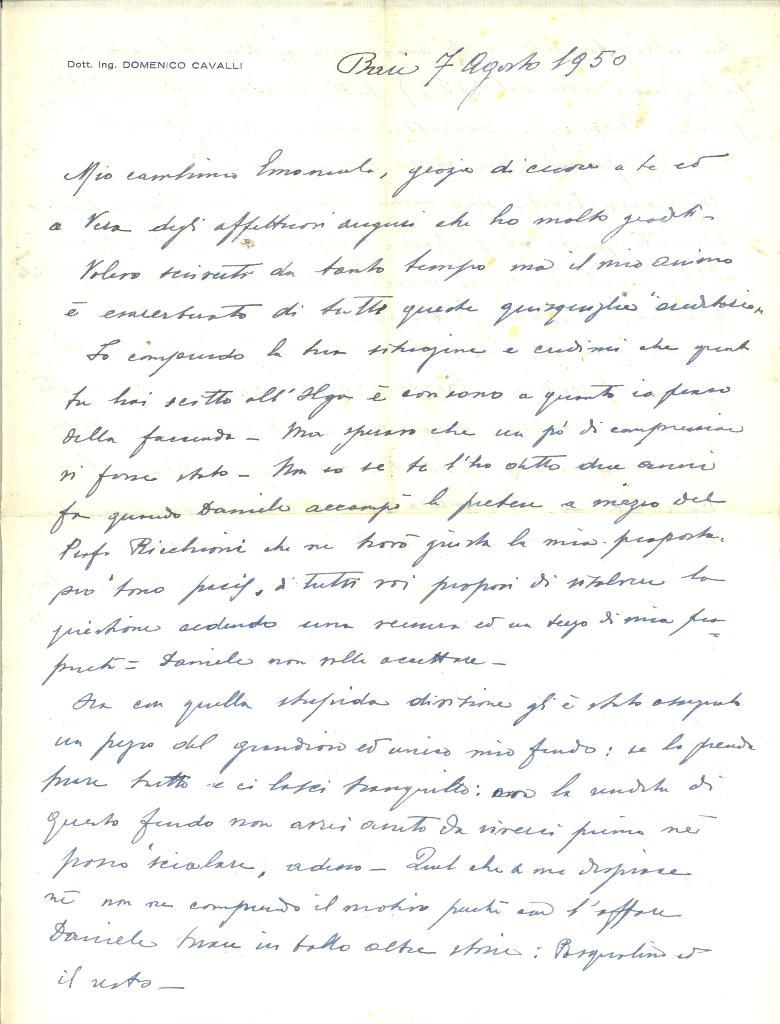 Dott. Ing. DOMENICO CAVALLI
Bari 7 Agosto 1950
Mio carissimo Emanuele, grazie di cuore a te ed
a Vera degli affettuosi auguri che ho molto graditi -
Volevo scriverti da tanto tempo ma il mio animo
è esacerbato di tutte queste quisquiglie "ereditarie"
Io comprendo la tua situazione e credimi che quanto
tu hai scritto all' è consono a quanto io penso
della faccenda - Ma speravo che un pó di comprensione
vi fosse stata - Non so se te l'ho detto due anni
fa quando Daniele accampò le pretese a mezzo del
Prof. Ricchioni che ne trovò giusta la mia proposta,
per di tutti voi proposi di risolvere la
questione cedendo una ed un di mia pro=
prietà = Daniele non volle accettare -
Ora con quella stupida divisione gli è stato assegnato
un pezzo del grandioso ed unico mio fondo: se lo prenda
pure tutto e ci lasci tranquilli: con la rendita di
questo fondo non avrei avuto da viverci prima né
posso "scialare, adesso - Quel che a me dispiace
né non ne comprendo il motivo perché con l'affare
Daniele tirare in ballo altre storie: Pasqualino ed
il resto -